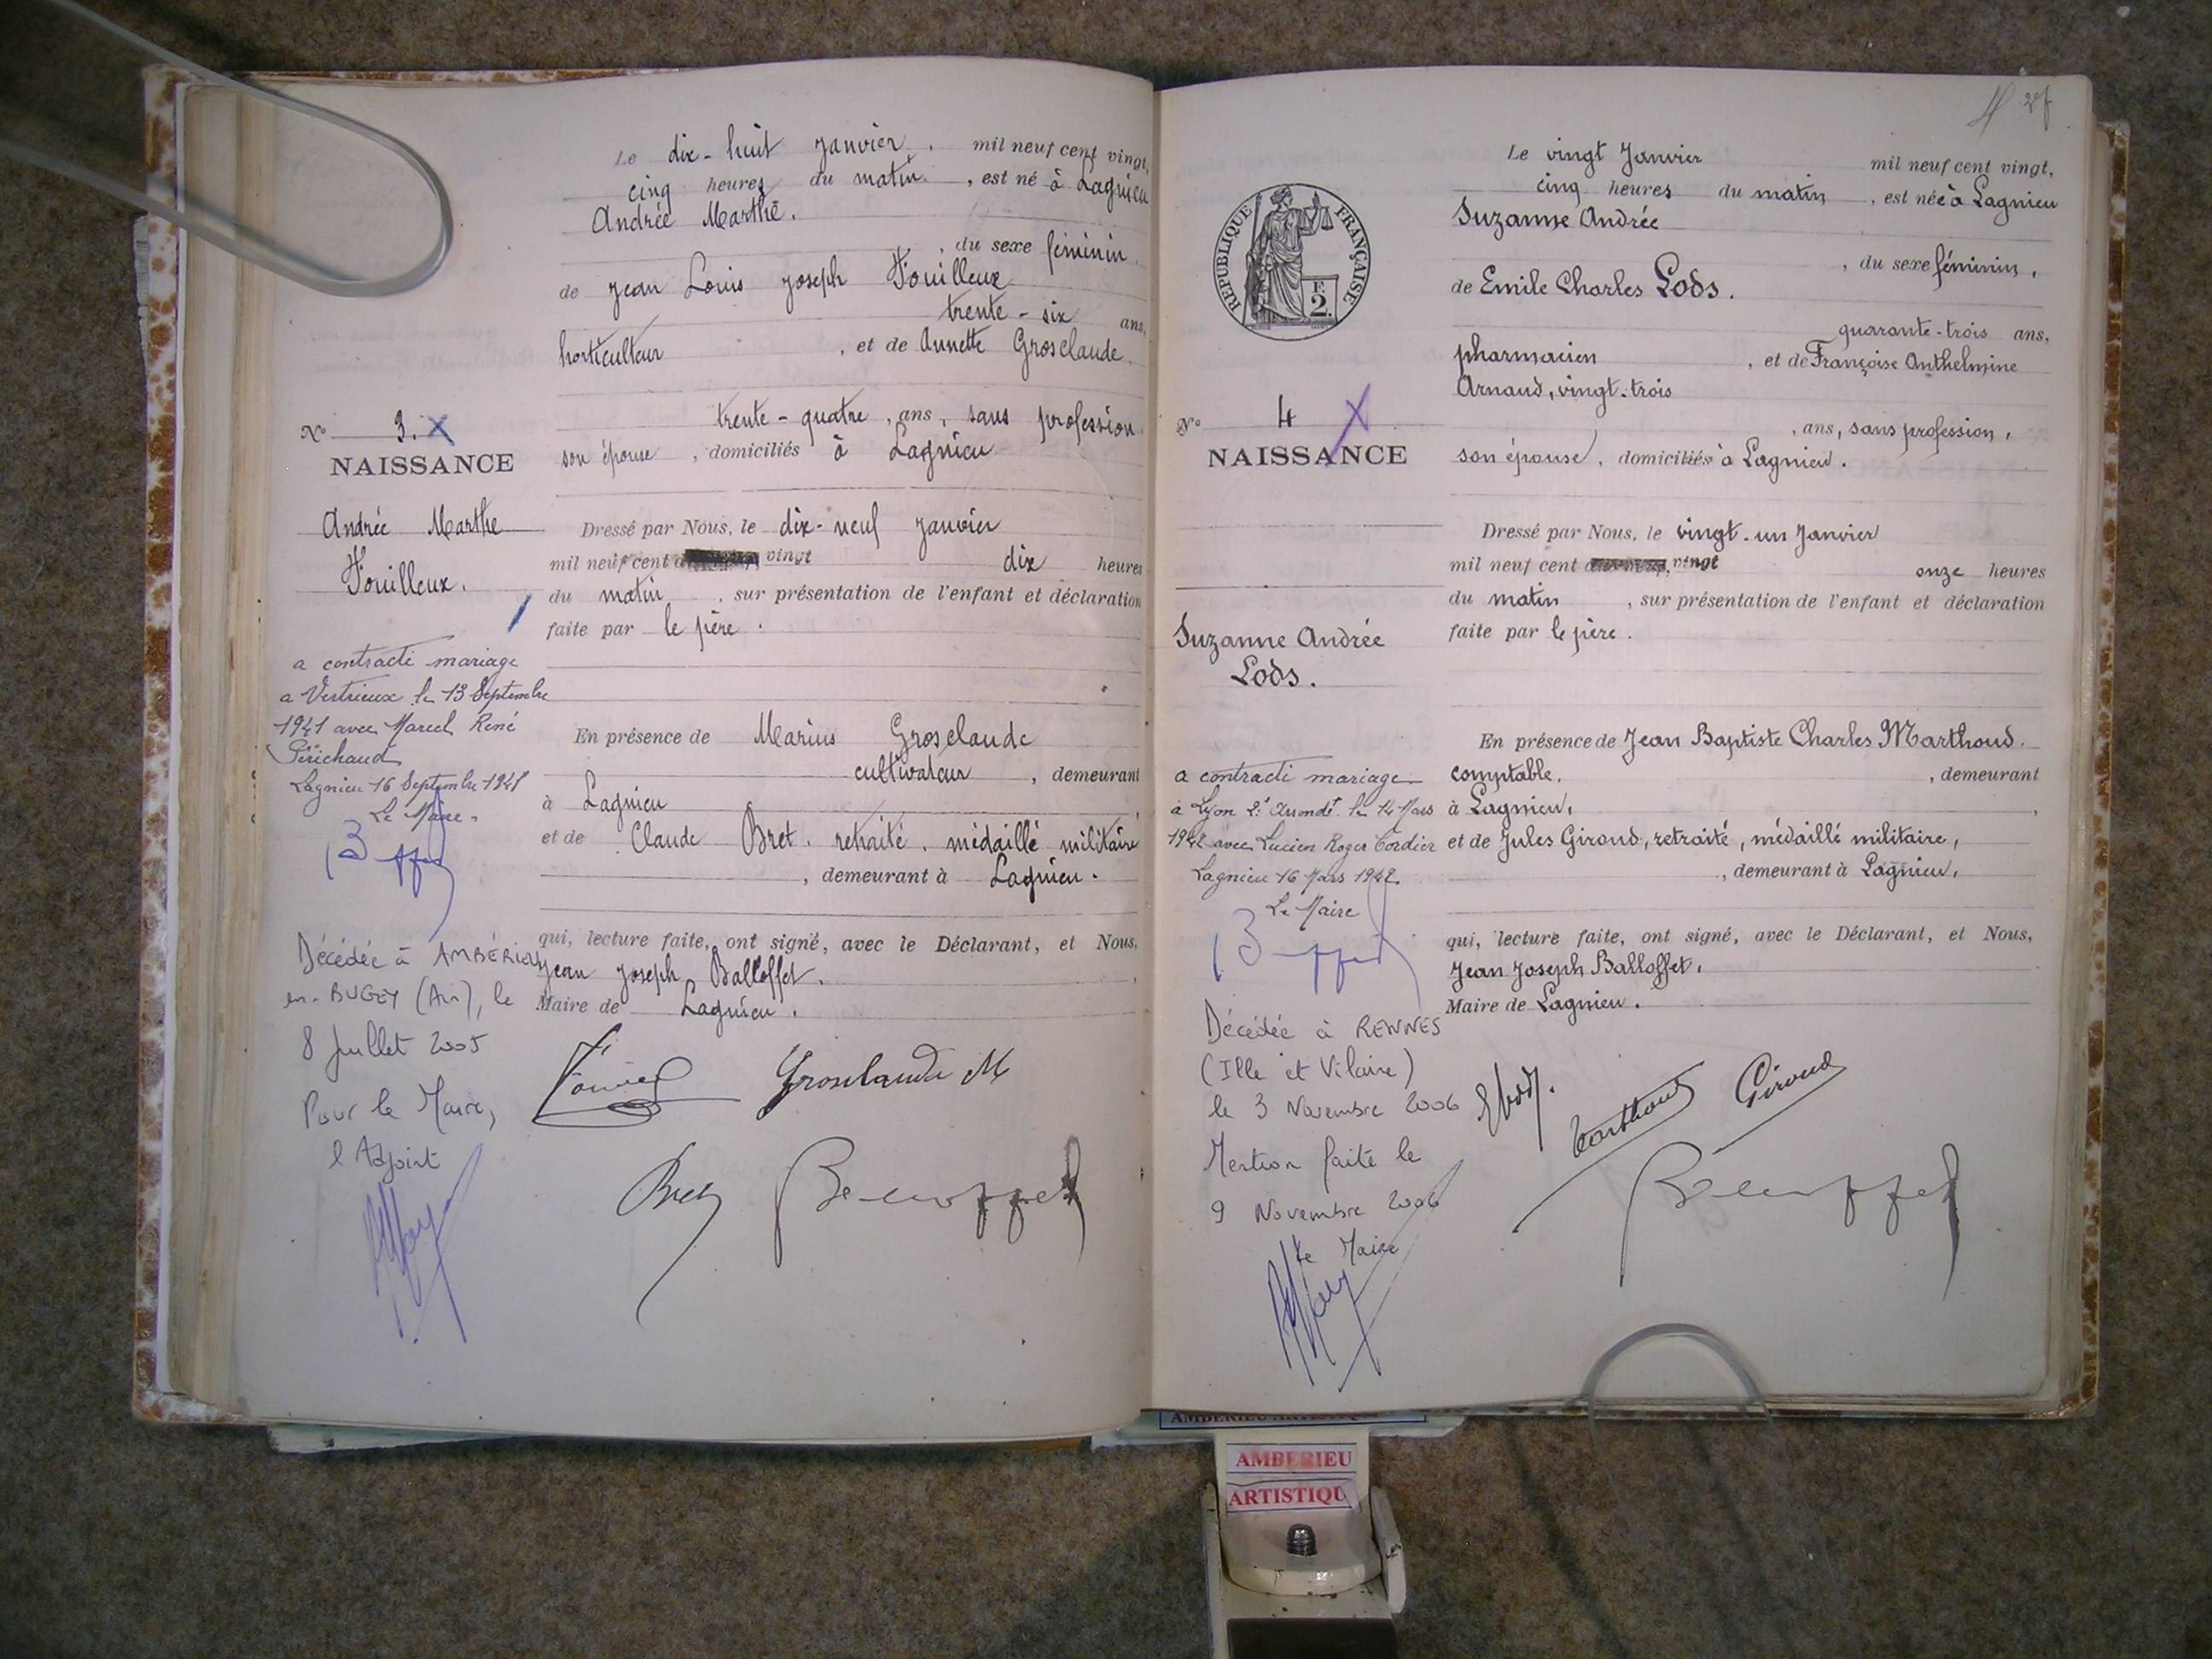 Le dix-huit Janvier, mil neuf cent vingt,
cinq heures du matin, est né à Lagnieu
Andrée Marthe.
, du sexe féminin
de Jean Louis Joseph Fouilleux
trente-six ans,
horticulteur, et de Annette Grosclaude
trente-quatre, ans, sans profession
son épouse, domiciliés à Lagnieu
N° 3. X
NAISSANCE
Andrée Marthe
Fouilleux.
Dressé par Nous, le dix-neuf Janvier
mil neuf cent vingt dix heures
du matin, sur présentation de l'enfant et déclaration
faite par le père.
a contracté mariage
a Vertrieux le 13 Septembre
1941 avec Marcel René
Périchaud
Lagnieu 16 Septembre 1941
Le Maire
En présence de Marius Grosclaude
cultivateur, demeurant
à Lagnieu,
et de Claude Bret, retraité, médaillé militaire
, demeurant à Lagnieu.
qui, lecture faite, ont signé, avec le Déclarant, et Nous,
Jean Joseph Balloffet,
Maire de Lagnieu.
Décédée à AMBÉRIEU
en-BUGEY (Ain), le
8 Juillet 2005
Pour le Maire,
l'Adjoint
Grosclaude M
Bret
4 2f
Le vingt Janvier mil neuf cent vingt,
cinq heures du matin, est née à Lagnieu
Suzanne Andrée
, du sexe féminin,
de Emile Charles Lods.
quarante-trois ans,
pharmacien, et de Françoise Anthelmine
Arnaud, vingt-trois
, ans, sans profession,
son épouse, domiciliés à Lagnieu.
RÉPUBLIQUE FRANÇAISE
F.
2.
N° 4 X
NAISSANCE
Suzanne Andrée
Lods.
Dressé par Nous, le vingt-un Janvier
mil neuf cent vingt onze heures
du matin, sur présentation de l'enfant et déclaration
faite par le père.
a contracté mariage
à Lyon 2e Arrondt le 14 Mars
1942 avec Lucien Roger Cordier
Lagnieu 16 Mars 1942
Le Maire
En présence de Jean Baptiste Charles Marthoud.
comptable, demeurant
à Lagnieu,
et de Jules Giroud, retraité, médaillé militaire,
, demeurant à Lagnieu,
qui, lecture faite, ont signé, avec le Déclarant, et Nous,
Jean Joseph Balloffet,
Maire de Lagnieu.
Décédée à RENNES
(Ille et Vilaine)
le 3 Novembre 2006
Mention faite le
9 Novembre 2006
Le Maire
Marthoud
Giroud
AMBERIEU ARTISTIQUE
AMBERIEU
ARTISTIQU